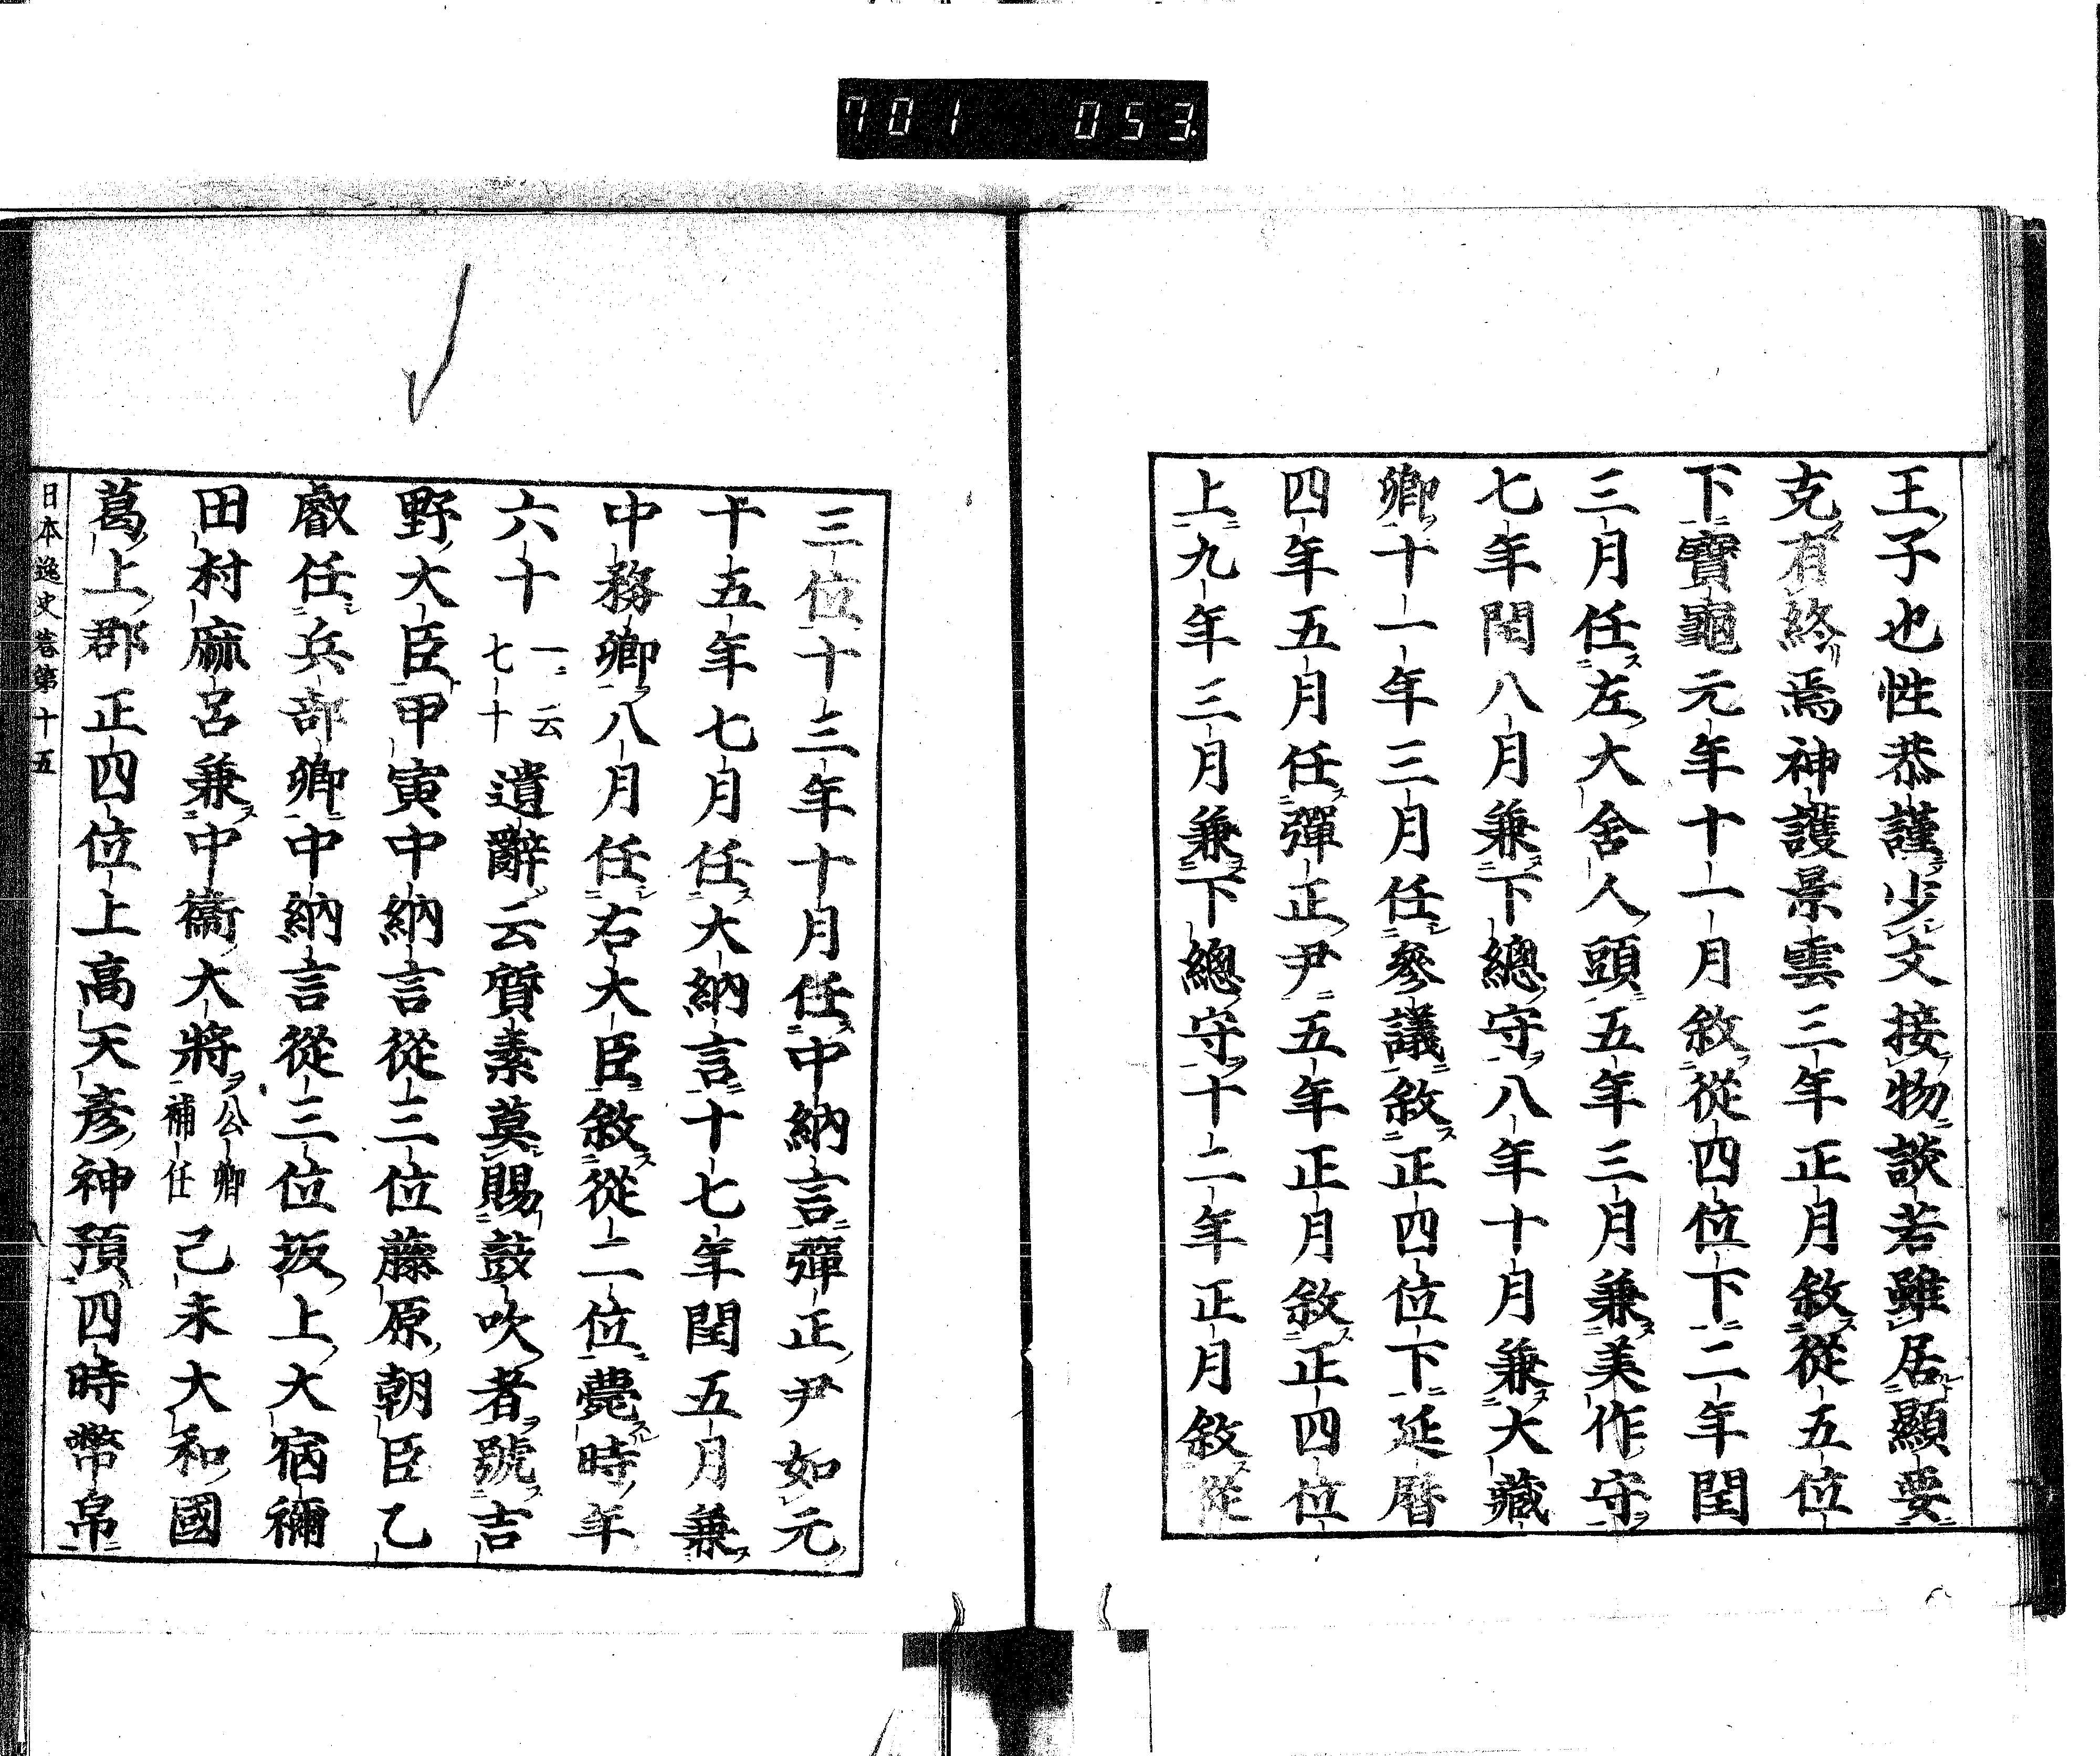 701 053
王子也性恭謹少文接物談若雖居顯要
克有終焉神護景雲三年正月敘從五位
下寶龜元年十一月敘從四位下二年閏
三月任左大舍人頭五年三月兼美作守
七年閏八月兼下總守八年十月兼大藏
卿十一年三月任參議敘正四位下延曆
四年五月任彈正尹五年正月敘正四位
上九年三月兼下總守十二年正月敘從
三位十三年十月任中納言彈正尹如元
十五年七月任大納言十七年閏五月兼
中務卿八月任右大臣敘從二位薨時年
六十一云七十遺辭云質素莫賜鼓吹者號吉
野大臣甲寅中納言從三位藤原朝臣乙
叡任兵部卿中納言從三位坂上大宿禰
田村麻呂兼中衞大將公卿補任己未大和國
葛上郡正四位上高天彥神預四時幣帛
日本逸史卷第十五